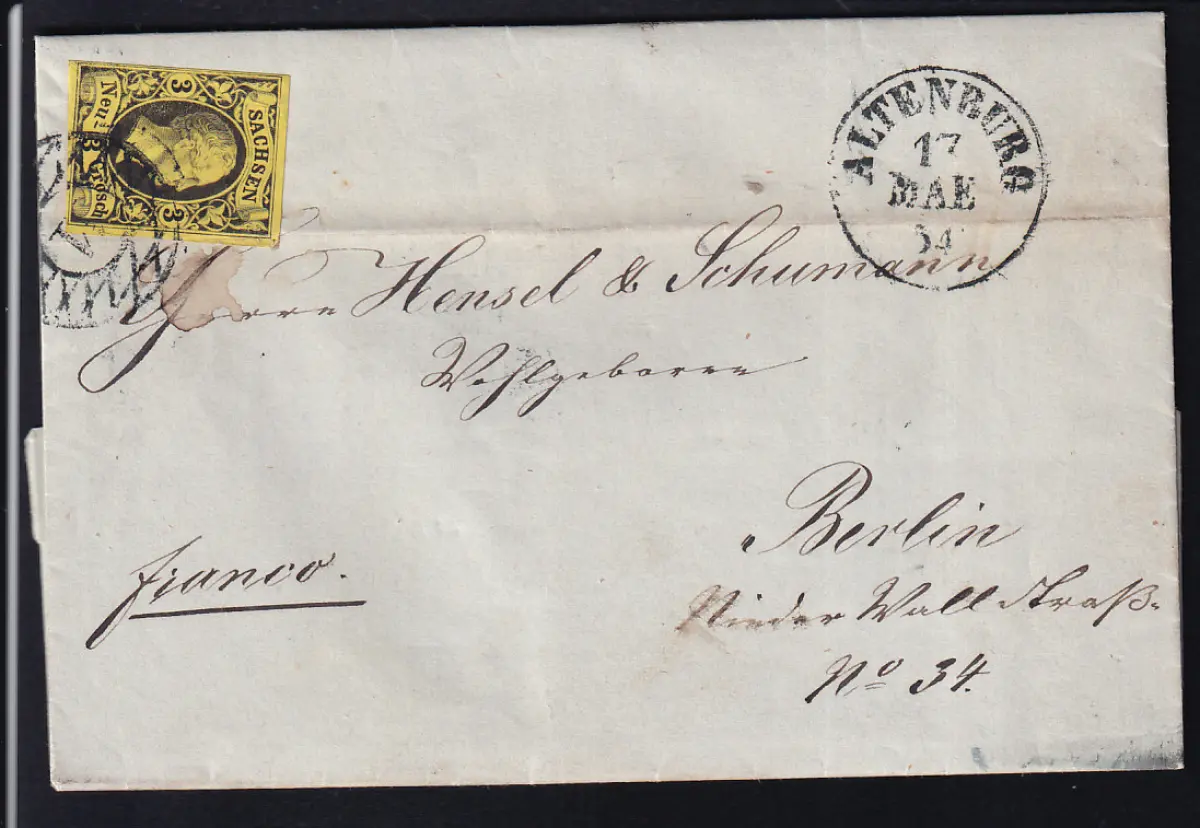 3 3
SACHSEN
Neu- Grosch
3 3
ALTENBURG
17
MAE
54
Herrn Hensel & Schumann
Wohlgeboren
Berlin
franco.
Nieder Wall Straß
No 34.